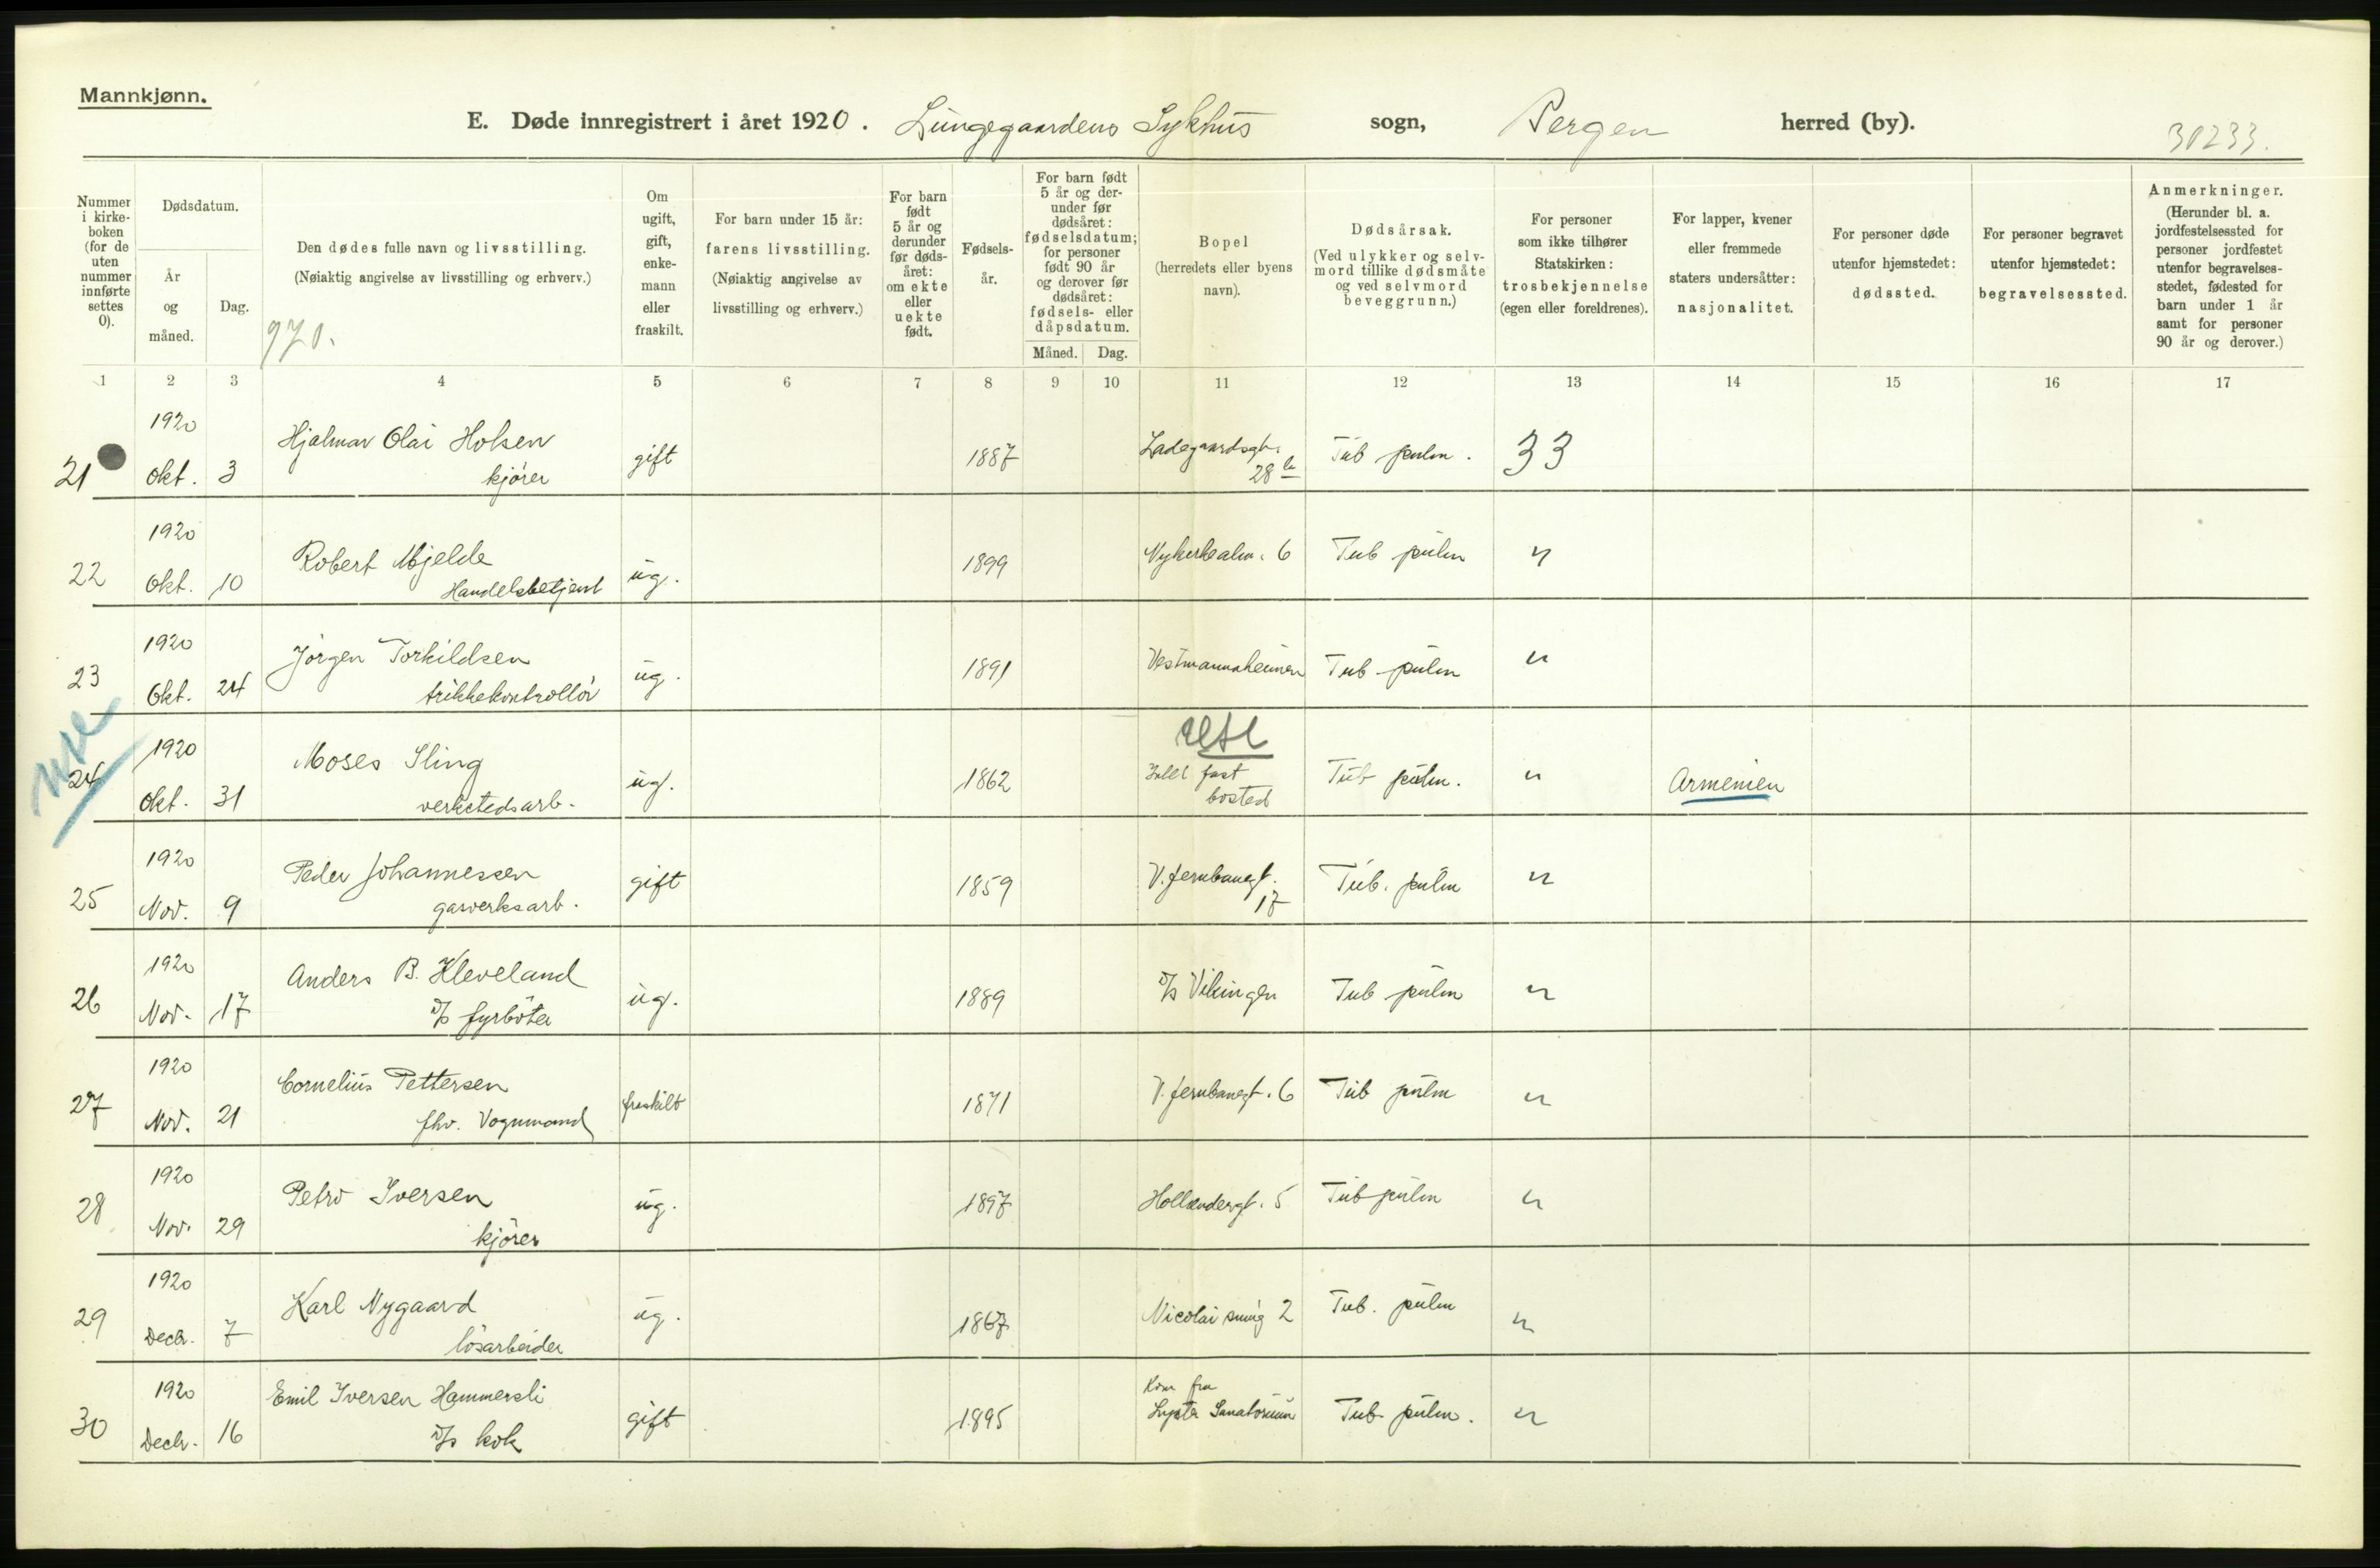 Mannkjønn.
E. Døde innregistrert i året 1920. Lungegaardens Sykhus sogn, Bergen herred (by).
30233.
Nummer i kirkeboken (for de uten nummer innførte settes 0).
Dødsdatum.
År og måned.
Dag.
Den dødes fulle navn og livsstilling.
(Nøiaktig angivelse av livsstilling og erhverv.)
970.
Om ugift, gift, enkemann eller fraskilt.
For barn under 15 år: farens livsstilling.
(Nøiaktig angivelse av livsstilling og erhverv.)
For barn født 5 år og derunder før dødsåret: om ekte eller uekte født.
Fødselsår.
For barn født 5 år og derunder før dødsåret: fødselsdatum; for personer født 90 år og derover før dødsåret: fødsels- eller dåpsdatum.
Måned. Dag.
Bopel (herredets eller byens navn).
Dødsårsak.
(Ved ulykker og selvmord tillike dødsmåte og ved selvmord beveggrunn.)
For personer som ikke tilhører Statskirken: trosbekjennelse (egen eller foreldrenes).
For lapper, kvener eller fremmede staters undersåtter: nasjonalitet.
For personer døde utenfor hjemstedet: dødssted.
For personer begravet utenfor hjemstedet: begravelsessted.
Anmerkninger.
(Herunder bl. a. jordfestelsessted for personer jordfestet utenfor begravelsesstedet, fødested for barn under 1 år samt for personer 90 år og derover.)
1 2 3 4 5 6 7 8 9 10 11 12 13 14 15 16 17
21 1920 Okt. 3 Hjalmar Olai Holsen kjörer gift 1887 Ladegaardsgt. 28 Tub pulm. 33
22 1920 Okt. 10 Robert Mjelde Handelsbetjent ug. 1899 Nykirkealm. 6 Tub pulm "
23 1920 Okt. 24 Jörgen Torkildsen trikkekontrollör ug. 1891 Vestmannaheimen Tub pulm "
24 1920 Okt. 31 Moses Sling verkstedsarb. ug. 1862 fast bosted Tub pulm. " Armenien
25 1920 Nov. 9 Peder Johannessen gasverksarb. gift 1859 V. Jernbanegt. 17 Tub. pulm "
26 1920 Nov. 17 Anders B. Kleveland D/S fyrböter ug. 1889 D/S Vikingen Tub pulm "
27 1920 Nov. 21 Cornelius Pettersen fhv. Vognmand fraskilt 1871 V. Jernbanegt. 6 Tub pulm "
28 1920 Nov. 29 Petro Iversen kjörer ug. 1897 Hollendergt. 5 Tub pulm "
29 1920 Decb. 7 Karl Nygaard lösarbeider ug. 1867 Nicolaismug 2 Tub. pulm "
30 1920 Decb. 16 Emil Iversen Hammersli D/S kok gift 1895 Kom fra Lyster Sanatorium Tub pulm. "